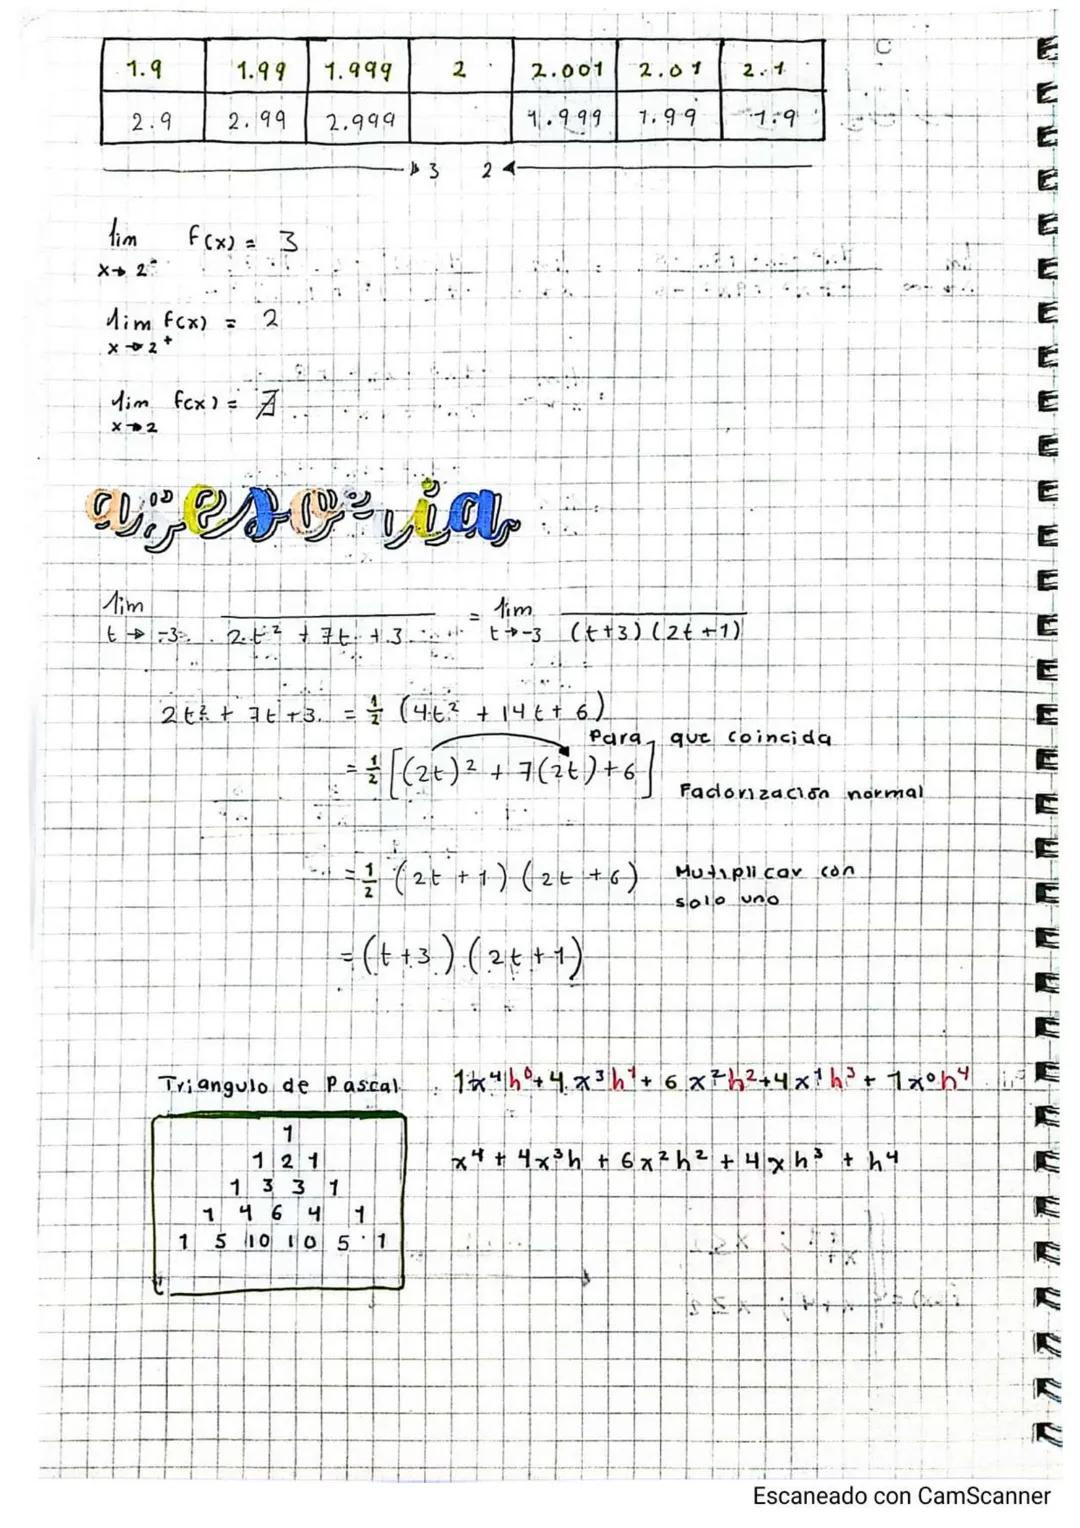 1.9 1.99 1.999 2 2.001 2.01 2.1
2.9 2.99 2.999 1.999 1.99 1.9
3 2
lim f(x) = 3
x→2⁻
lim f(x) = 2
x→2⁺
lim f(x) = ∄
x→2
asesoria
lim = lim
t→-3 2t² + 7t + 3 t→-3 (t+3)(2t+1)
2t² + 7t + 3 = 1/2 (4t² + 14t + 6)
Para que coincida
= 1/2 [(2t)² + 7(2t) + 6]
Factorización normal
= 1/2 (2t + 1)(2t + 6) Mutiplicar con
solo uno
= (t+3)(2t+1)
Triangulo de Pascal 1x⁴h⁰ + 4x³h¹ + 6x²h² + 4x¹h³ + 1x⁰h⁴
1
1 2 1 x⁴ + 4x³h + 6x²h² + 4xh³ + h⁴
1 3 3 1
1 4 6 4 1
1 5 10 10 5 1
Escaneado con CamScanner